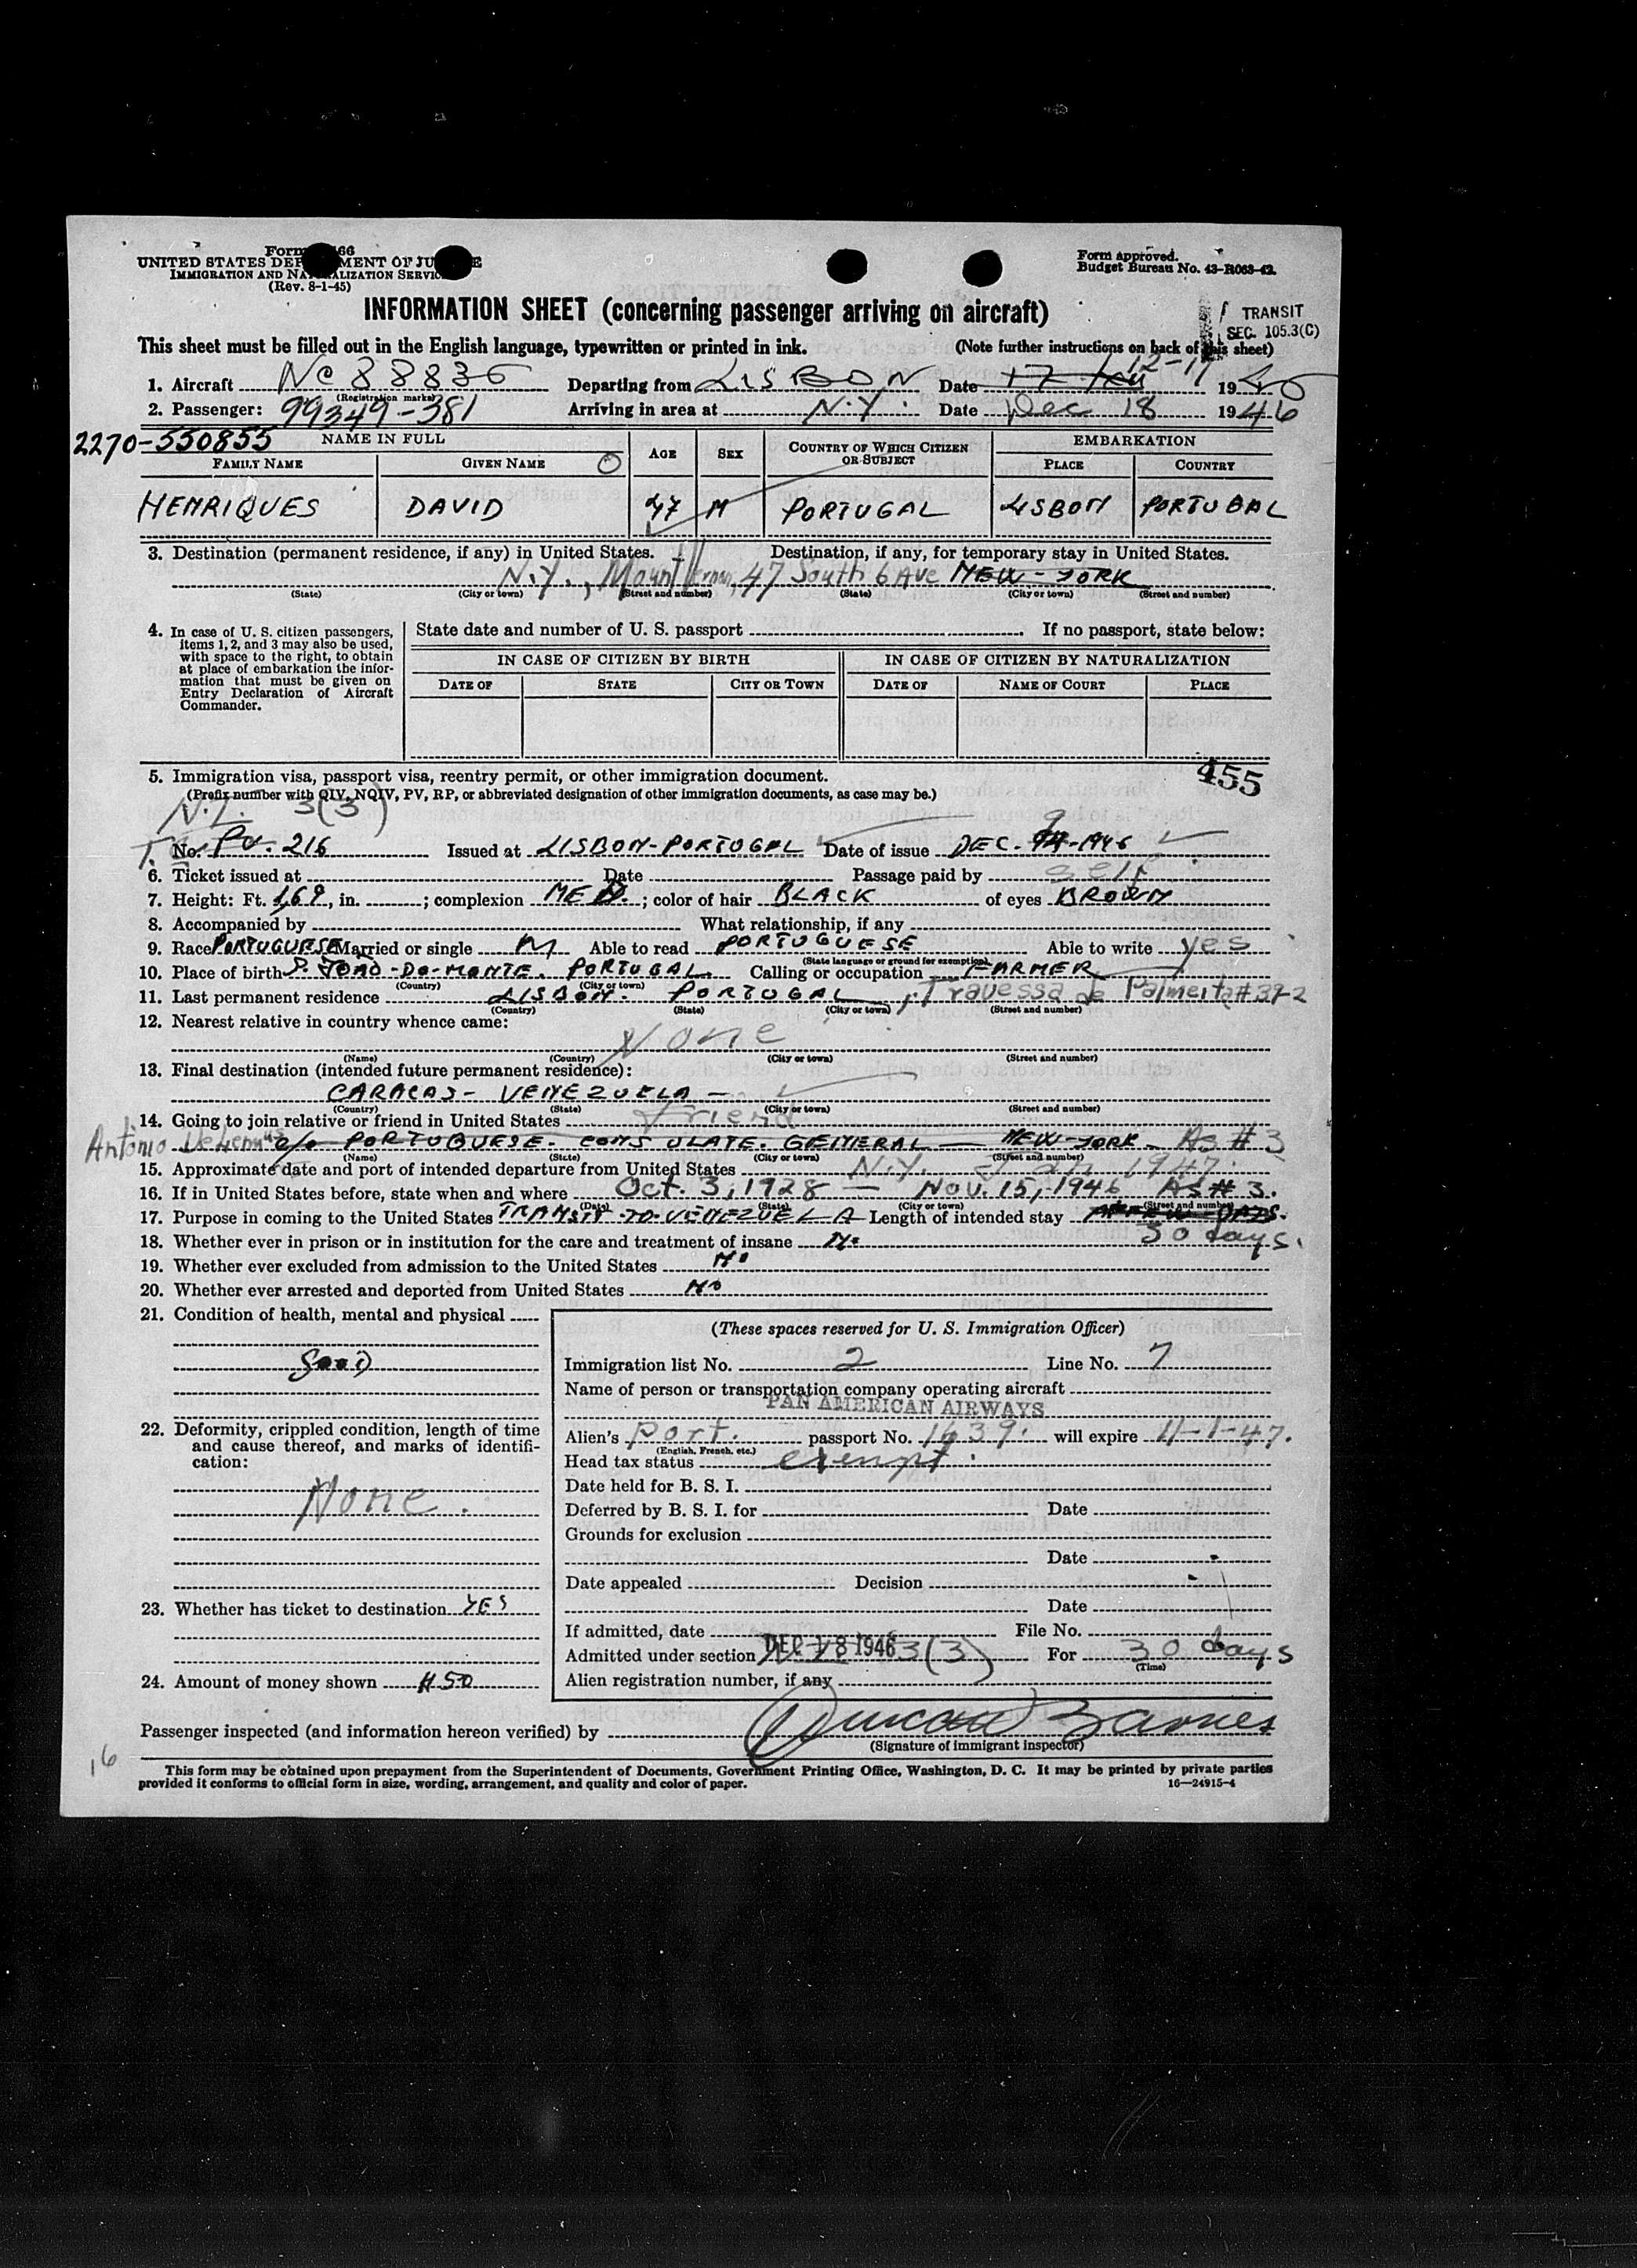 Form 66
UNITED STATES DEP MENT OF JU E
IMMIGRATION AND NA ALIZATION SERVIC
(Rev. 8-1-45)
Form approved.
Budget Bureau No. 43-R063-42.
INFORMATION SHEET (concerning passenger arriving on aircraft)
TRANSIT
SEC. 105.3(C)
This sheet must be filled out in the English language, typewritten or printed in ink. (Note further instructions on back of this sheet)
12-17
1. Aircraft NC 88836 Departing from LISBON Date 1946
(Registration marks)
2. Passenger: 99349-381 Arriving in area at N.Y. Date Dec 18 1946
2270-550855 NAME IN FULL AGE SEX COUNTRY OF WHICH CITIZEN OR SUBJECT EMBARKATION
FAMILY NAME GIVEN NAME PLACE COUNTRY
HENRIQUES DAVID 47 M PORTUGAL LISBON PORTUGAL
3. Destination (permanent residence, if any) in United States. Destination, if any, for temporary stay in United States.
N.Y., Mount Vernon, 47 South 6 Ave NEW-YORK
(State) (City or town) (Street and number) (State) (City or town) (Street and number)
4. In case of U. S. citizen passengers, items 1, 2, and 3 may also be used, with space to the right, to obtain at place of embarkation the information that must be given on Entry Declaration of Aircraft Commander.
State date and number of U. S. passport If no passport, state below:
IN CASE OF CITIZEN BY BIRTH IN CASE OF CITIZEN BY NATURALIZATION
DATE OF STATE CITY OR TOWN DATE OF NAME OF COURT PLACE
5. Immigration visa, passport visa, reentry permit, or other immigration document. 455
(Prefix number with QIV, NQIV, PV, RP, or abbreviated designation of other immigration documents, as case may be.)
3(3)
No. PV. 216 Issued at LISBON-PORTUGAL Date of issue DEC. 9 -1946
6. Ticket issued at Date Passage paid by self
7. Height: Ft. 1,69, in. ; complexion MED. ; color of hair BLACK of eyes BROWN
8. Accompanied by What relationship, if any
9. Race PORTUGUESE Married or single M Able to read PORTUGUESE Able to write yes
(State language or ground for exemption)
10. Place of birth S. JOÃO-DO-MONTE. PORTUGAL. Calling or occupation FARMER
(Country) (City or town)
11. Last permanent residence LISBON. PORTUGAL, Travessa de Palmeita #39-2
(Country) (State) (City or town) (Street and number)
12. Nearest relative in country whence came:
None
(Name) (Country) (City or town) (Street and number)
13. Final destination (intended future permanent residence):
CARACAS- VENEZUELA-
(Country) (State) (City or town) (Street and number)
14. Going to join relative or friend in United States friend
Antonio c/o PORTUGUESE. CONSULATE. GENERAL - NEW-YORK - As #3
(Name) (State) (City or town) (Street and number)
15. Approximate date and port of intended departure from United States N.Y. Jan 1947.
16. If in United States before, state when and where Oct. 3, 1928 - Nov. 15, 1946 As # 3.
(Date) (State) (City or town) (Street and number)
17. Purpose in coming to the United States TRANSIT-TO-VENEZUELA Length of intended stay
18. Whether ever in prison or in institution for the care and treatment of insane No 30 days.
19. Whether ever excluded from admission to the United States No
20. Whether ever arrested and deported from United States No
21. Condition of health, mental and physical
Good
22. Deformity, crippled condition, length of time and cause thereof, and marks of identification:
None.
23. Whether has ticket to destination YES
24. Amount of money shown $50
(These spaces reserved for U. S. Immigration Officer)
Immigration list No. 2 Line No. 7
Name of person or transportation company operating aircraft
PAN AMERICAN AIRWAYS
Alien's Port. passport No. 1639. will expire 11-1-47.
(English, French, etc.)
Head tax status exempt.
Date held for B. S. I.
Deferred by B. S. I. for Date
Grounds for exclusion
Date
Date appealed Decision
Date
If admitted, date DEC 18 1946 File No.
Admitted under section 3(3) For 30 days
(Time)
Alien registration number, if any
Passenger inspected (and information hereon verified) by Duncan Barnes
(Signature of immigrant inspector)
16
This form may be obtained upon prepayment from the Superintendent of Documents, Government Printing Office, Washington, D. C. It may be printed by private parties
provided it conforms to official form in size, wording, arrangement, and quality and color of paper. 16—24915-4